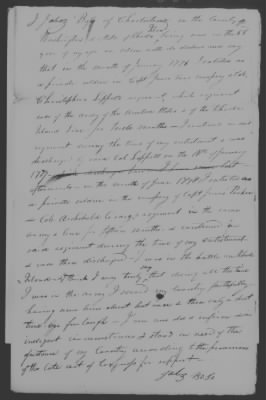 I Jabez Bo of Charlestown in the County
Washington & State of Rhode Island being in the 68
year of my age on oath declare and say
that in the month of January 1776 I enlisted as
a private soldier in Capt company of Col
Christopher Lippitt regiment, which regiment
was of the army of the United States of the Rhode
Island line for twelve months I continued in said
regiment during the time of my enlistment & was
discharged by said Col Lippitt on the 18th of January
1777
afterwards in the month of June 1778 I enlisted as
a private soldier in the company of Capt James Parker
Col Archibald Crary's regiment in the same
army & line for fifteen months & continued in
said regiment during the time of my enlistment
& was then discharged I was in the battle on Rhode
Island & I think I may truly say that during all the time
I was in the army I served my Country faithfully
having been absent but once & then only a short
time on furlough I am now in
indigent circumstances & stand in need of the
assistance of my Country according to the provisions
of the late act of Congress for support
Jabez